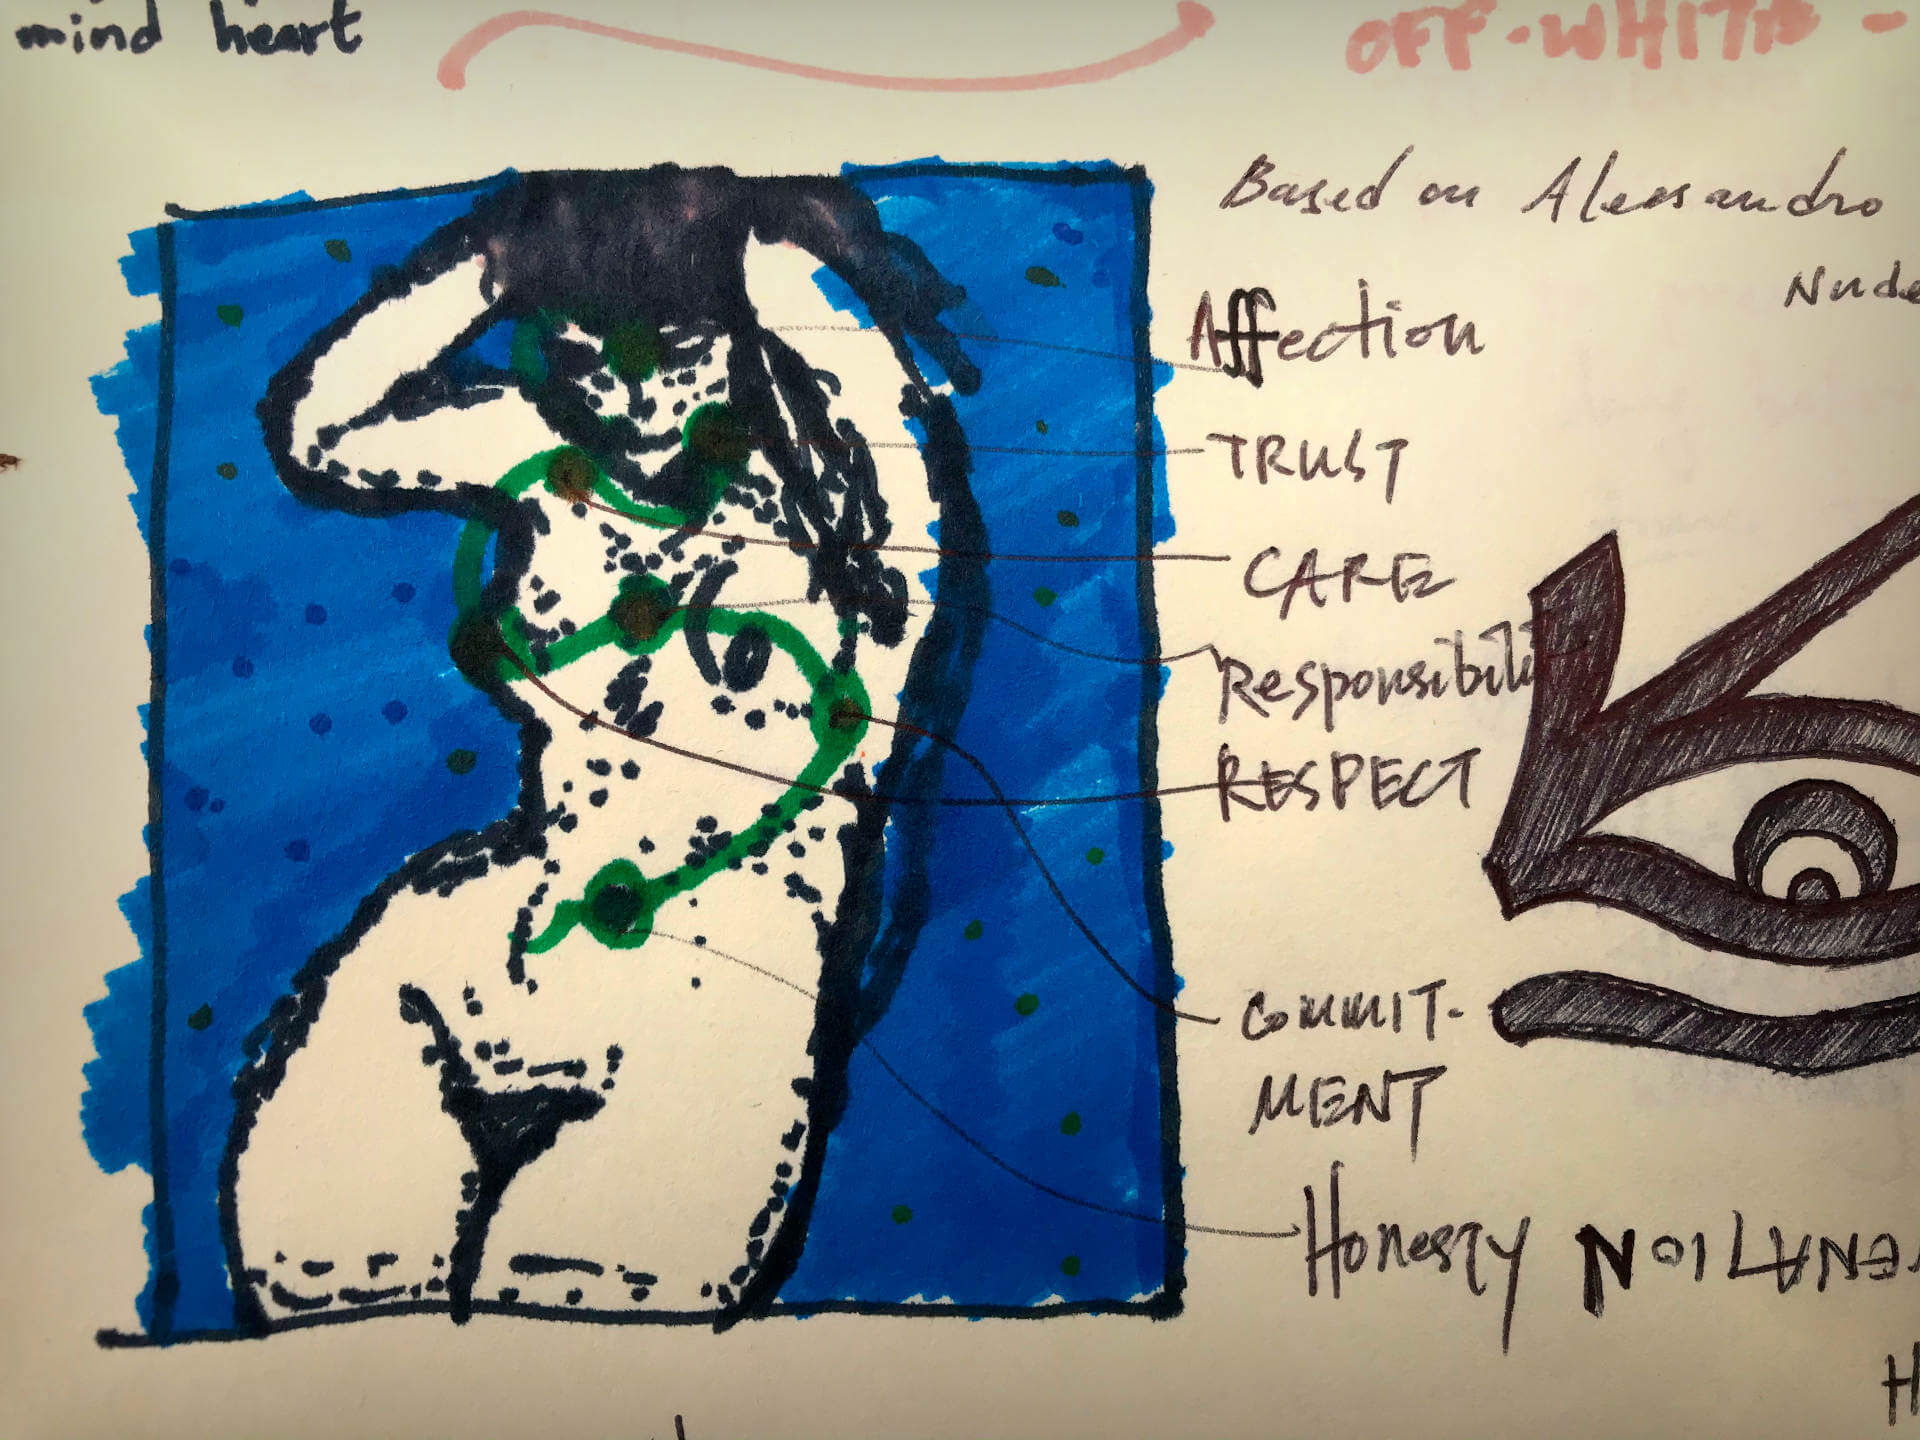 mind heart
OFF-WHITE -
Based on Alessandro
Nude
Affection
TRUST
CARE
Responsibili
RESPECT
COMMIT-
MENT
Honesty
H